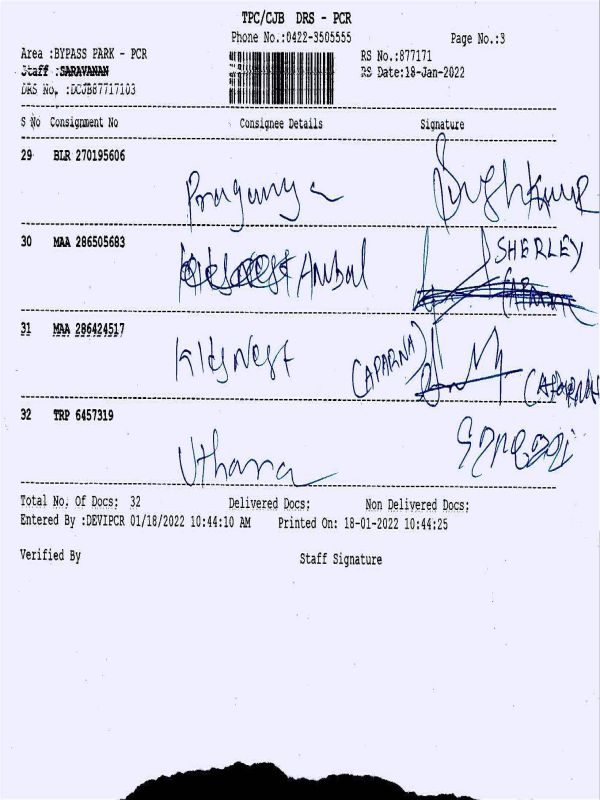 TPC/CJB DRS - PCR
Phone No.:0422-3505555 Page No.:3
Area :BYPASS PARK - PCR RS No.:877171
Staff :SARAVANAN RS Date:18-Jan-2022
DRS No. :DCJB87717103
S No Consignment No Consignee Details Signature
29 BLR 270195606
30 MAA 286505683 Anbal SHERLEY
31 MAA 286424517 KidsNest (APARNA) (APARNA)
32 TRP 6457319 Uthara
Total No. Of Docs: 32 Delivered Docs: Non Delivered Docs:
Entered By :DEVIPCR 01/18/2022 10:44:10 AM Printed On: 18-01-2022 10:44:25
Verified By Staff Signature